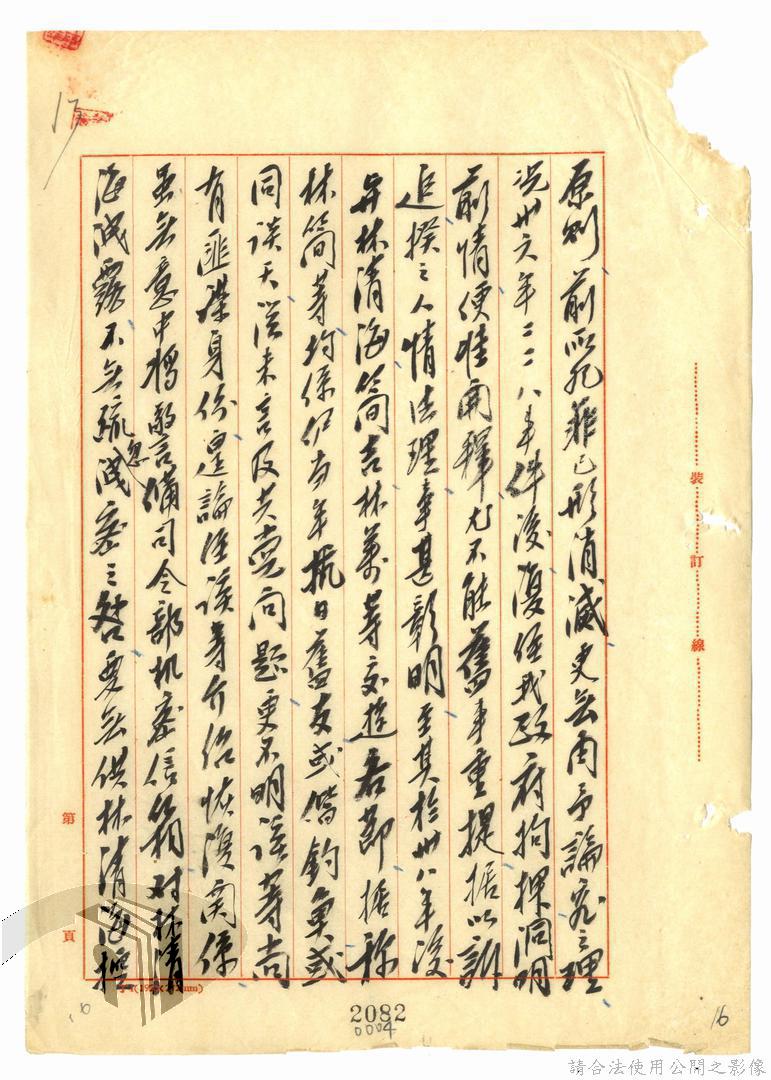 原則前所犯罪已形消滅更無用予論究之理
況卅六年二二八事件後復經我政府拘捕洞明
前情便准開釋尤不能舊事重提據以訴
追揆之人情法理事甚彰明至其於卅八年後
與林清海簡吉林等交遊各節據称
林簡等均係伊當年抗日舊友或偕釣魚或
同談天從未言及共党問題更不明該等尚
有匪諜身份是論經該等介紹恢復関係
虽無意中將警備司令部机密信箱对林清
海洩露不無疏忽洩密之咎要無供林清海
裝訂線
第 頁
(195×272mm)
2082
0004
16
17
請合法使用公開之影像